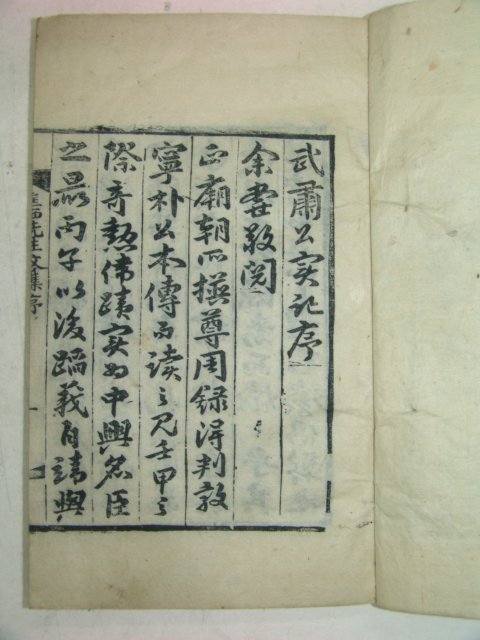 武肅公実記序
余嘗敬閱
正廟朝所撰尊周録得判敦
寧朴公本傳而读之見壬甲之
際奇勲偉蹟実為中興名臣
之最丙子以後蹈義自靖與
先生文集序